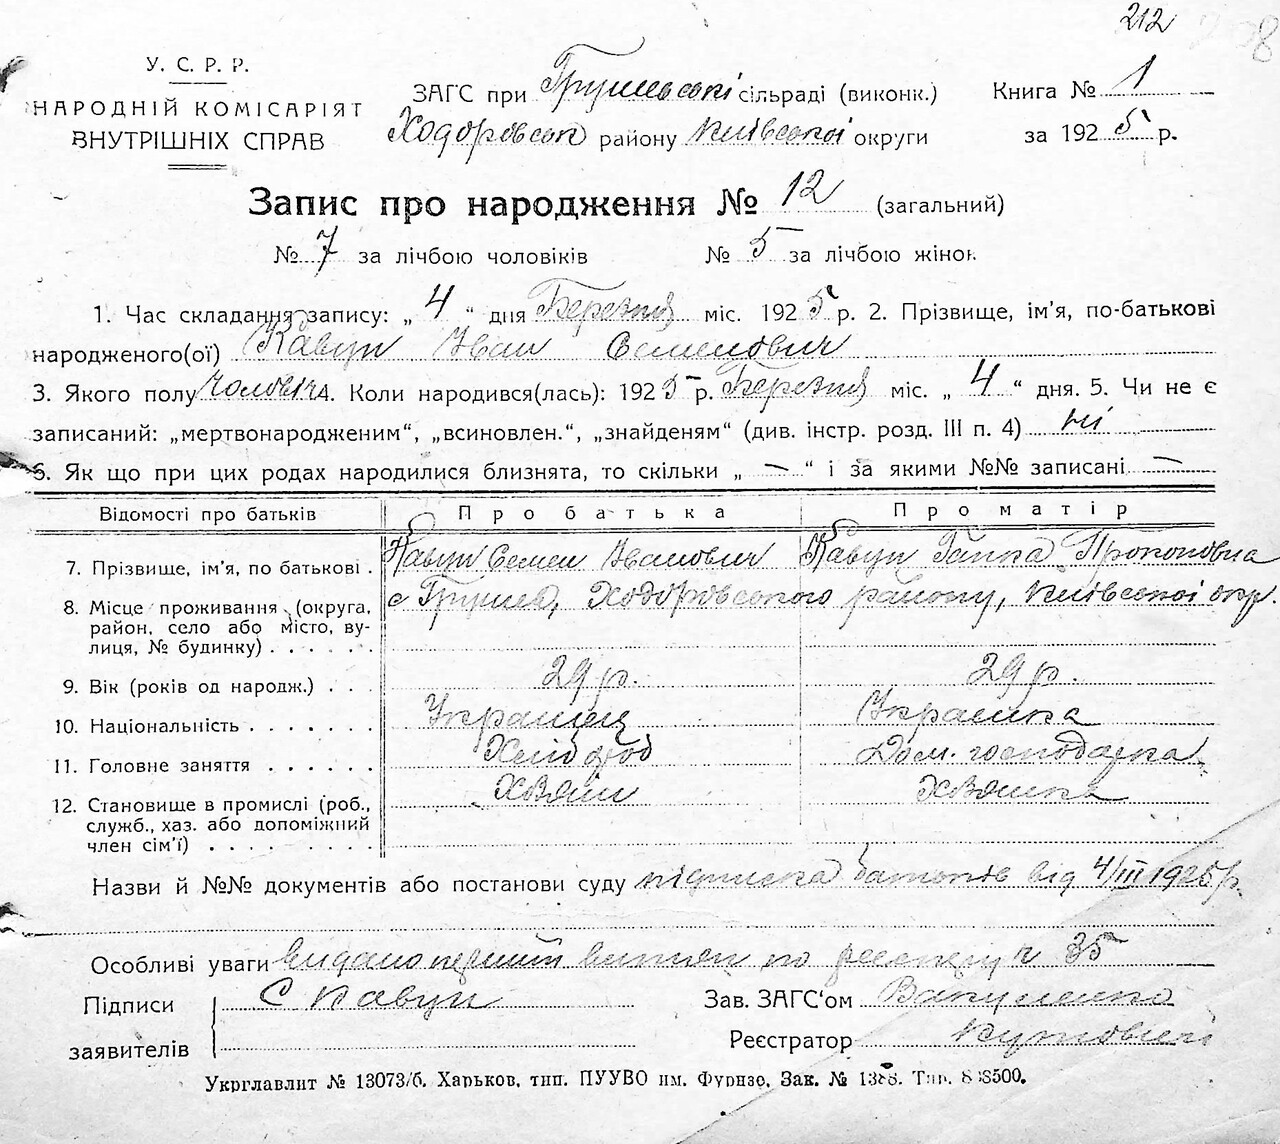 212
У. С. Р. Р.
НАРОДНІЙ КОМІСАРІЯТ
ВНУТРІШНІХ СПРАВ
ЗАГС при Грушевські сільраді (виконк.)
Ходоровськ району Київської округи
Книга № 1
за 1925 р.
Запис про народження № 12 (загальний)
№ 7 за лічбою чоловіків № 5 за лічбою жінок
1. Час складання запису: „ 4 “ дня Березня міс. 1925 р. 2. Прізвище, ім'я, по-батькові
народженого(ої) Кавун Іван Семенович
3. Якого полу чоловіч 4. Коли народився(лась): 1925 р. Березня міс. „ 4 “ дня. 5. Чи не є
записаний: „мертвонародженим“, „всиновлен.“, „знайденям“ (див. інстр. розд. III п. 4) ні
6. Як що при цих родах народилися близнята, то скільки „ — “ і за якими №№ записані —
Відомості про батьків Про батька Про матір
7. Прізвище, ім'я, по батькові . Кавун Семен Іванович Кавун Ганка Прокоповна
8. Місце проживання (округа, с Грушев, Ходоровського району, Київської окр.
район, село або місто, ву-
лиця, № будинку) . . . . .
9. Вік (років од народж.) . . . 29 р. 29 р.
10. Національність . . . . . . . Украинец Украинка
11. Головне заняття . . . . . . Хлібороб Дом. господарка
12. Становище в промислі (роб., Хозяин Хозяинка
служб., хаз. або допоміжний
член сім'ї) . . . . . . . . .
Назви й №№ документів або постанови суду підписка батьків від 4/III 1925 р.
Особливі уваги видано перший витяг по реєстру ч 35
Підписи С Кавун
заявителів
Зав. ЗАГС'ом Вакуленко
Реєстратор
Укрглавлит № 13073/б. Харьков, тип. ПУУВО им. Фрунзе. Зак. № 1388. Тир.